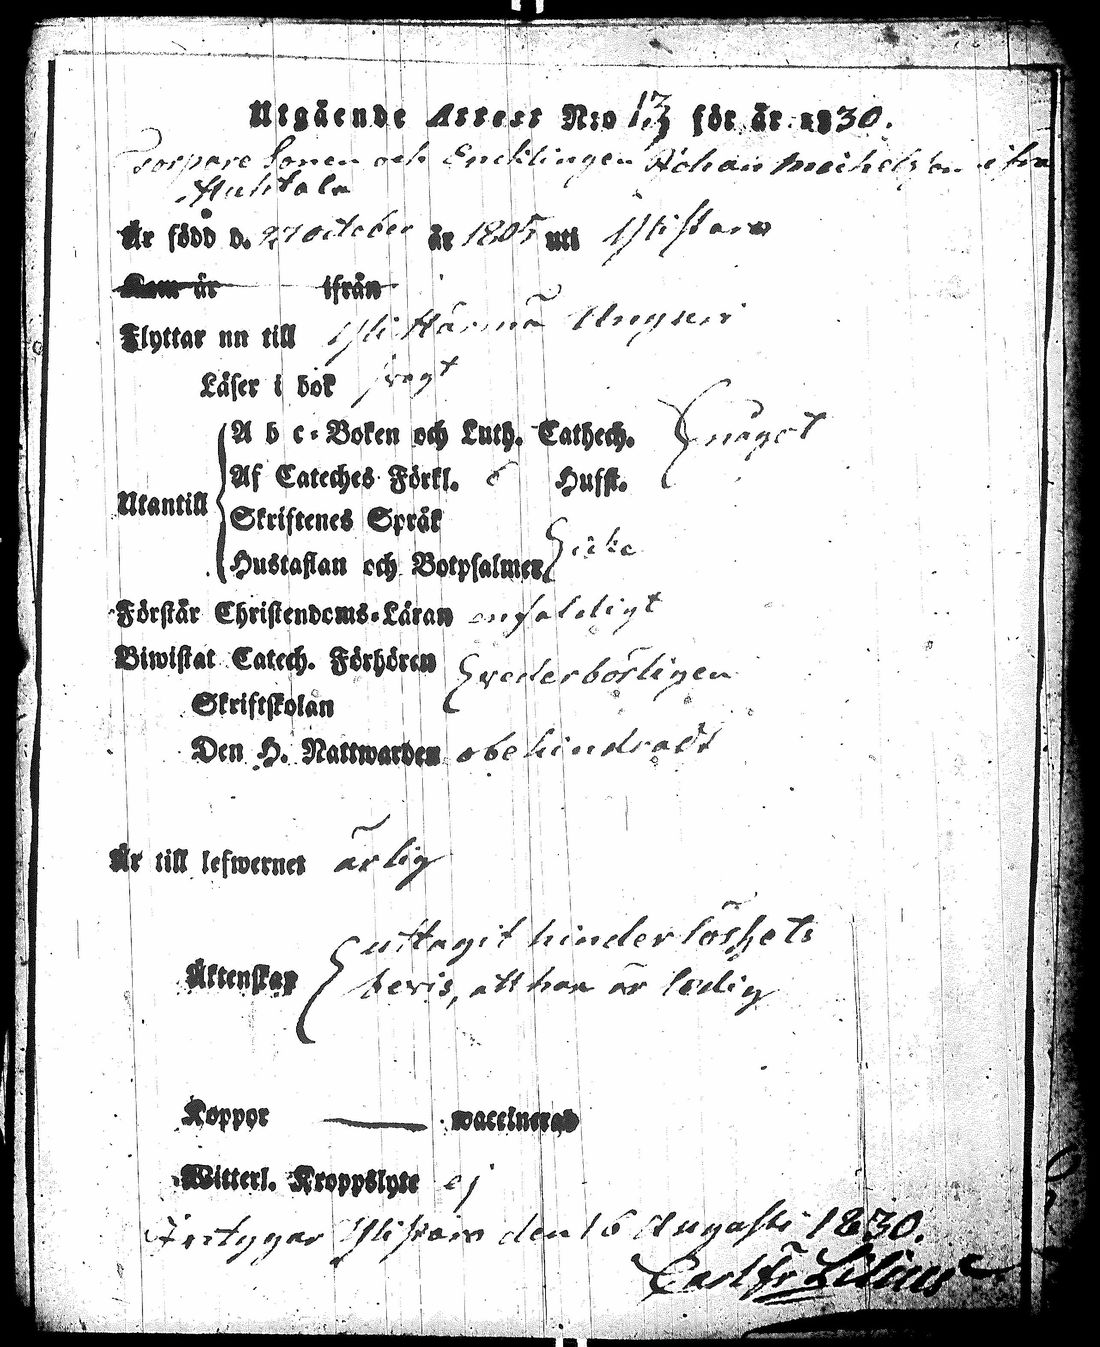 Utgående Attest N:o 13 för år 1830.
Torpare Sonen och Encklingen Johan Michelsson ifrån
Huhtala
Är född d. 27 october år 1805 uti Ylistaro
Kom år ifrån
Flyttar nu till Yli Härmä
Läser i bok svagt
A b c-Boken och Luth. Cathech. något
Af Cateches Förkl. Hufst.
Utantill
Skriftenes Språk
Hustaflan och Botpsalmer icke
Förstår Christendoms-Läran enfaldigt
Biwistat Catech. Förhören vederbörligen
Skriftskolan
Den H. Nattwarden obehindradt
Är till lefwernet ärlig
uttagit hinderlöshets
Äktenskap
bevis, att han är ledig
Koppor — waccinerad
Witterl. Kroppslyte ej
Intygar Ylistaro den 16 Augusti 1830.
Carl Fr Lilius